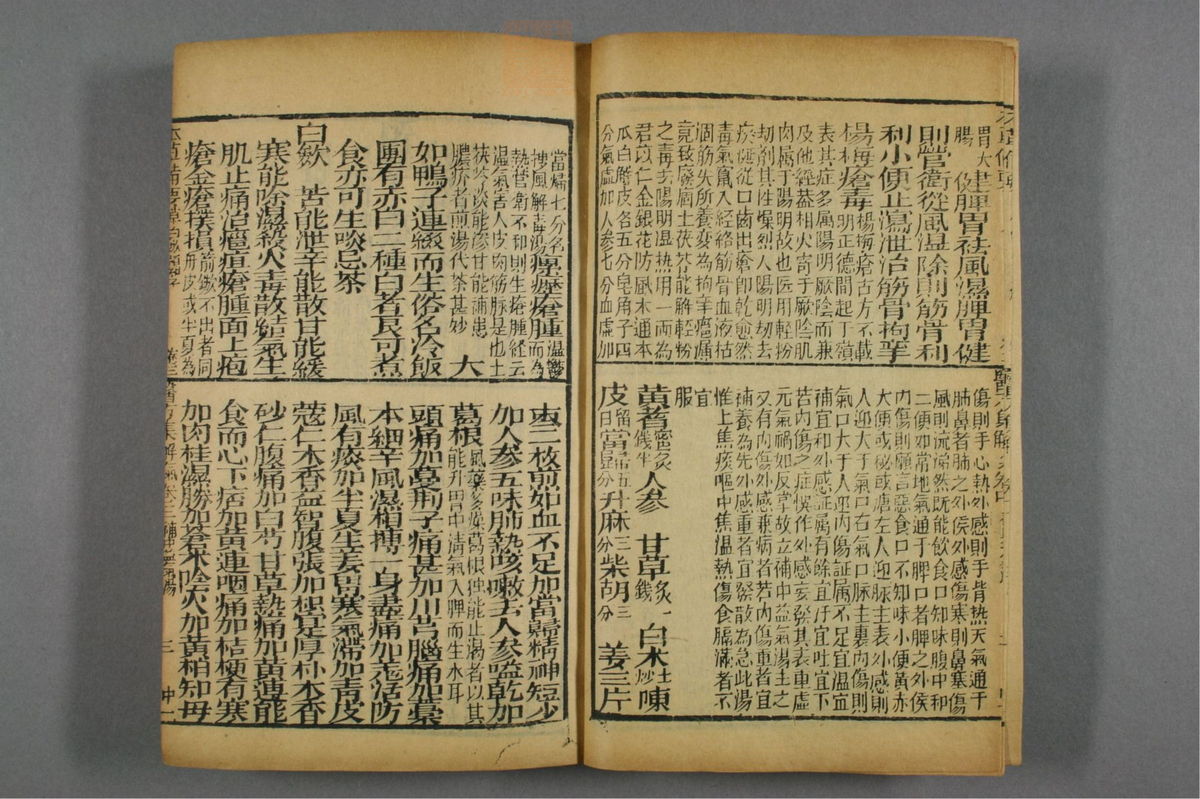 胃大腸健脾胃祛風濕脾胃健
則營衛從風濕除則筋骨利
利小便止瀉泄治筋骨拘攣
楊梅瘡毒楊梅瘡古方不載明正德間起于嶺
表其症多属陽明厥陰而兼
及他經葢相火寄于厥陰肌
肉属于陽明故也医用輕粉
刼剤其性燥烈入陽明刼去
痰涎從口齒出瘡卽乾愈然
毒氣竄入經絡筋骨血液枯
涸筋失所養变為拘攣癰漏
竟致廢痼土茯苓能解輕粉
之毒去陽明湿热用一两為
君苡仁金銀花防風木通木
瓜白蘚皮各五分皂角子四
分氣虛加人參七分血虛加
傷則手心熱外感則手背热天氣通于
肺鼻者肺之外侯外感傷寒則鼻塞傷
風則流涕然既能飲食口知味腹中和
二便如常地氣通于脾口者脾之外侯
內傷則願言惡食口不知味小便黃赤
大便或秘或溏左人迎脉主表外感則
人迎大于氣口右氣口脉主裏內傷則
氣口大于人迎內傷証属不足宜温宜
補宜和外感証属有餘宜汗宜吐宜下
苦內傷之症悞作外感妄發其表重虛
元氣禍如反掌故立補中益氣湯主之
又有內傷外感兼病者若內傷重者宜
補養為先外感重者宜發散為急此湯
惟上焦痰嘔中焦温熱傷食膈滿者不
宜
服
黃耆蜜炙錢半人參 甘草炙一錢白术土炒陳
皮留白當歸五分升麻三分柴胡三分 姜三片
當歸七分名搜風解毒湯瘰癧瘡腫温鬱而為
熱营衛不和則生瘡腫経云
湿氣害人皮肉筋脉是也土
茯苓淡能滲甘能補患
膿疥者煎湯代茶甚妙 大
如鴨子連綴而生俗名冷飯
團有赤白二種白者良可煮
食亦可生啖忌茶
白歛 苦能泄辛能散甘能緩
寒能除濕殺火毒散結氣生
肌止痛治癰疽瘡腫面上疱
瘡金瘡撲損箭鏃不出者同丹皮或半夏為
棗二枚煎如血不足加當歸精神短少
加人參五味肺熱咳嗽去人參嗌乾加
葛根風藥多燥葛根独能止渴者以其能升胃中清氣入脾而生水耳
頭痛加蔓荆子痛甚加川芎腦痛加藁
本細辛風濕相搏一身盡痛加羌活防
風有痰加半夏生姜胃寒氣滯加青皮
蔻仁木香益智腹脹加枳寔厚朴木香
砂仁腹痛加白芍甘草熱痛加黃連能
食而心下痞加黃連咽痛加桔梗有寒
加肉桂濕勝加蒼术陰火加黃栢知母